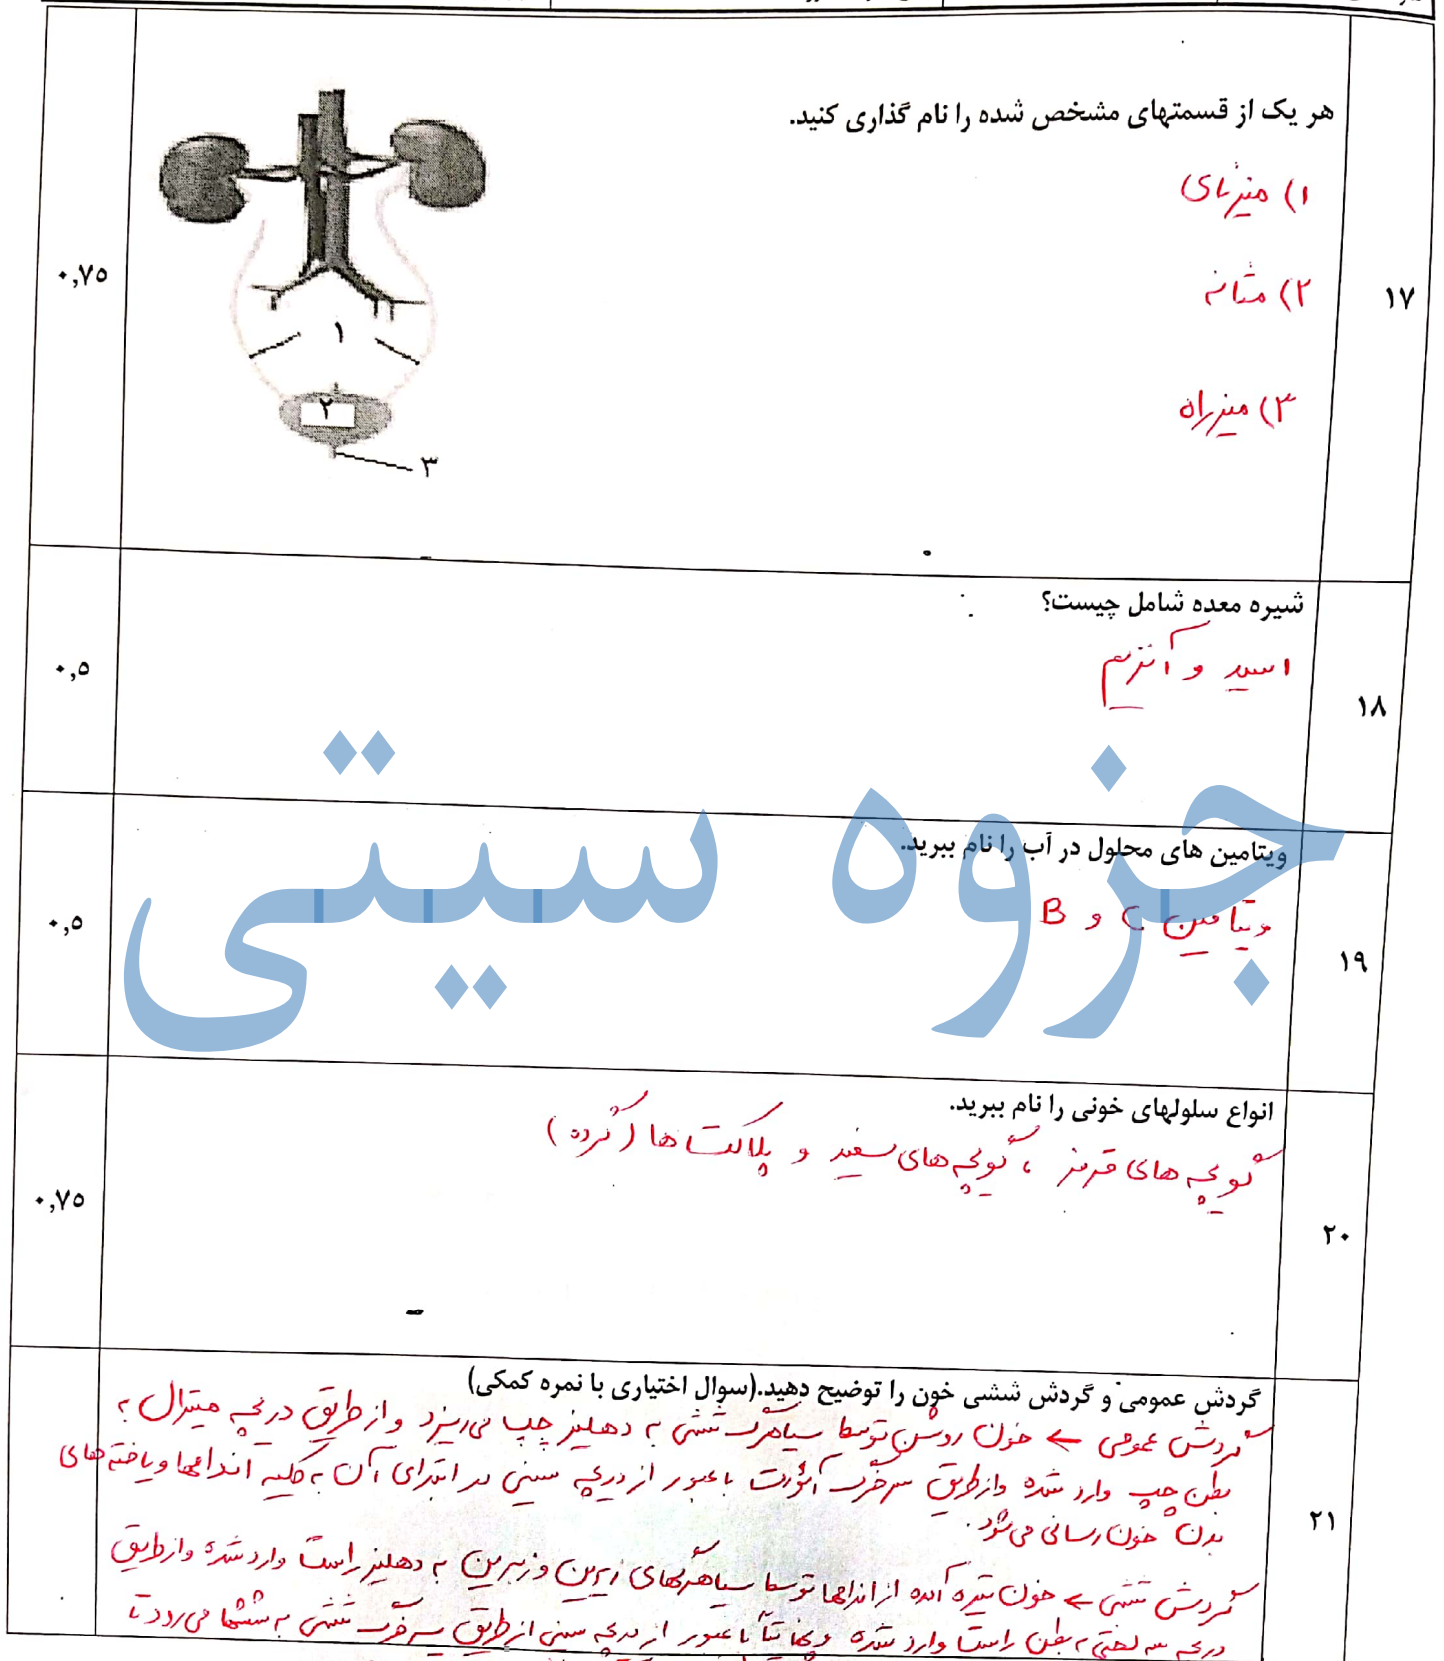 هر یک از قسمتهای مشخص شده را نام گذاری کنید.
۱) میزنای
۲) مثانه
۳) میزراه
۱
۲
۳
۱۷
۰,۷۵
شیره معده شامل چیست؟
اسید و آنزیم
۱۸
۰,۵
ویتامین های محلول در آب را نام ببرید.
ویتامین C و B
۱۹
۰,۵
جزوه سیتی
انواع سلولهای خونی را نام ببرید.
گویچه های قرمز ، گویچه های سفید و پلاکت ها (گرده)
۲۰
۰,۷۵
گردش عمومی و گردش ششی خون را توضیح دهید.(سوال اختیاری با نمره کمکی)
گردش عمومی ← خون روشن توسط سیاهرگ ششی به دهلیز چپ می‌ریزد و از طریق دریچه میترال به
بطن چپ وارد شده و از طریق سرخرگ آئورت با عبور از دریچه سینی در ابتدای آن به کلیه اندامها و یافته های
بدن خون رسانی می‌شود.
گردش ششی ← خون تیره آمده از اندامها توسط سیاهرگهای زیرین و زبرین به دهلیز راست وارد شده و از طریق
دریچه سه لختی به بطن راست وارد شده و نهایتاً با عبور از دریچه سینی از طریق سرخرگ ششی به ششها می‌رود تا
۲۱